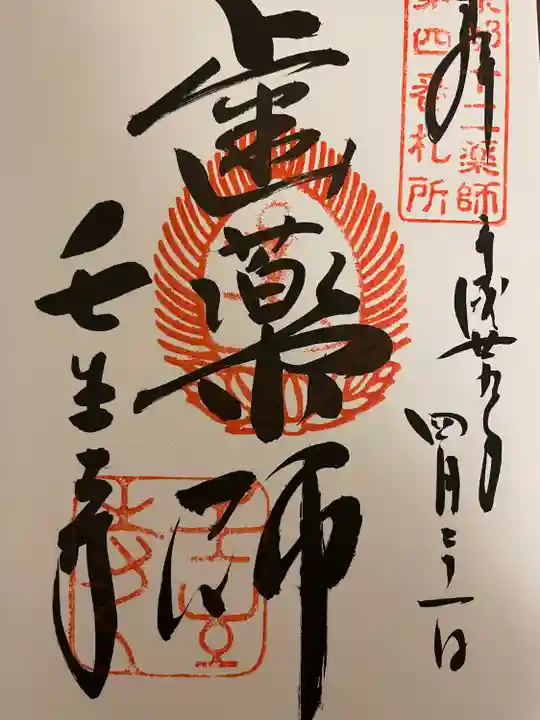 奉拝
京都十二薬師
第四番札所
平成廿九年
四月二十一日
歯薬師
壬生寺